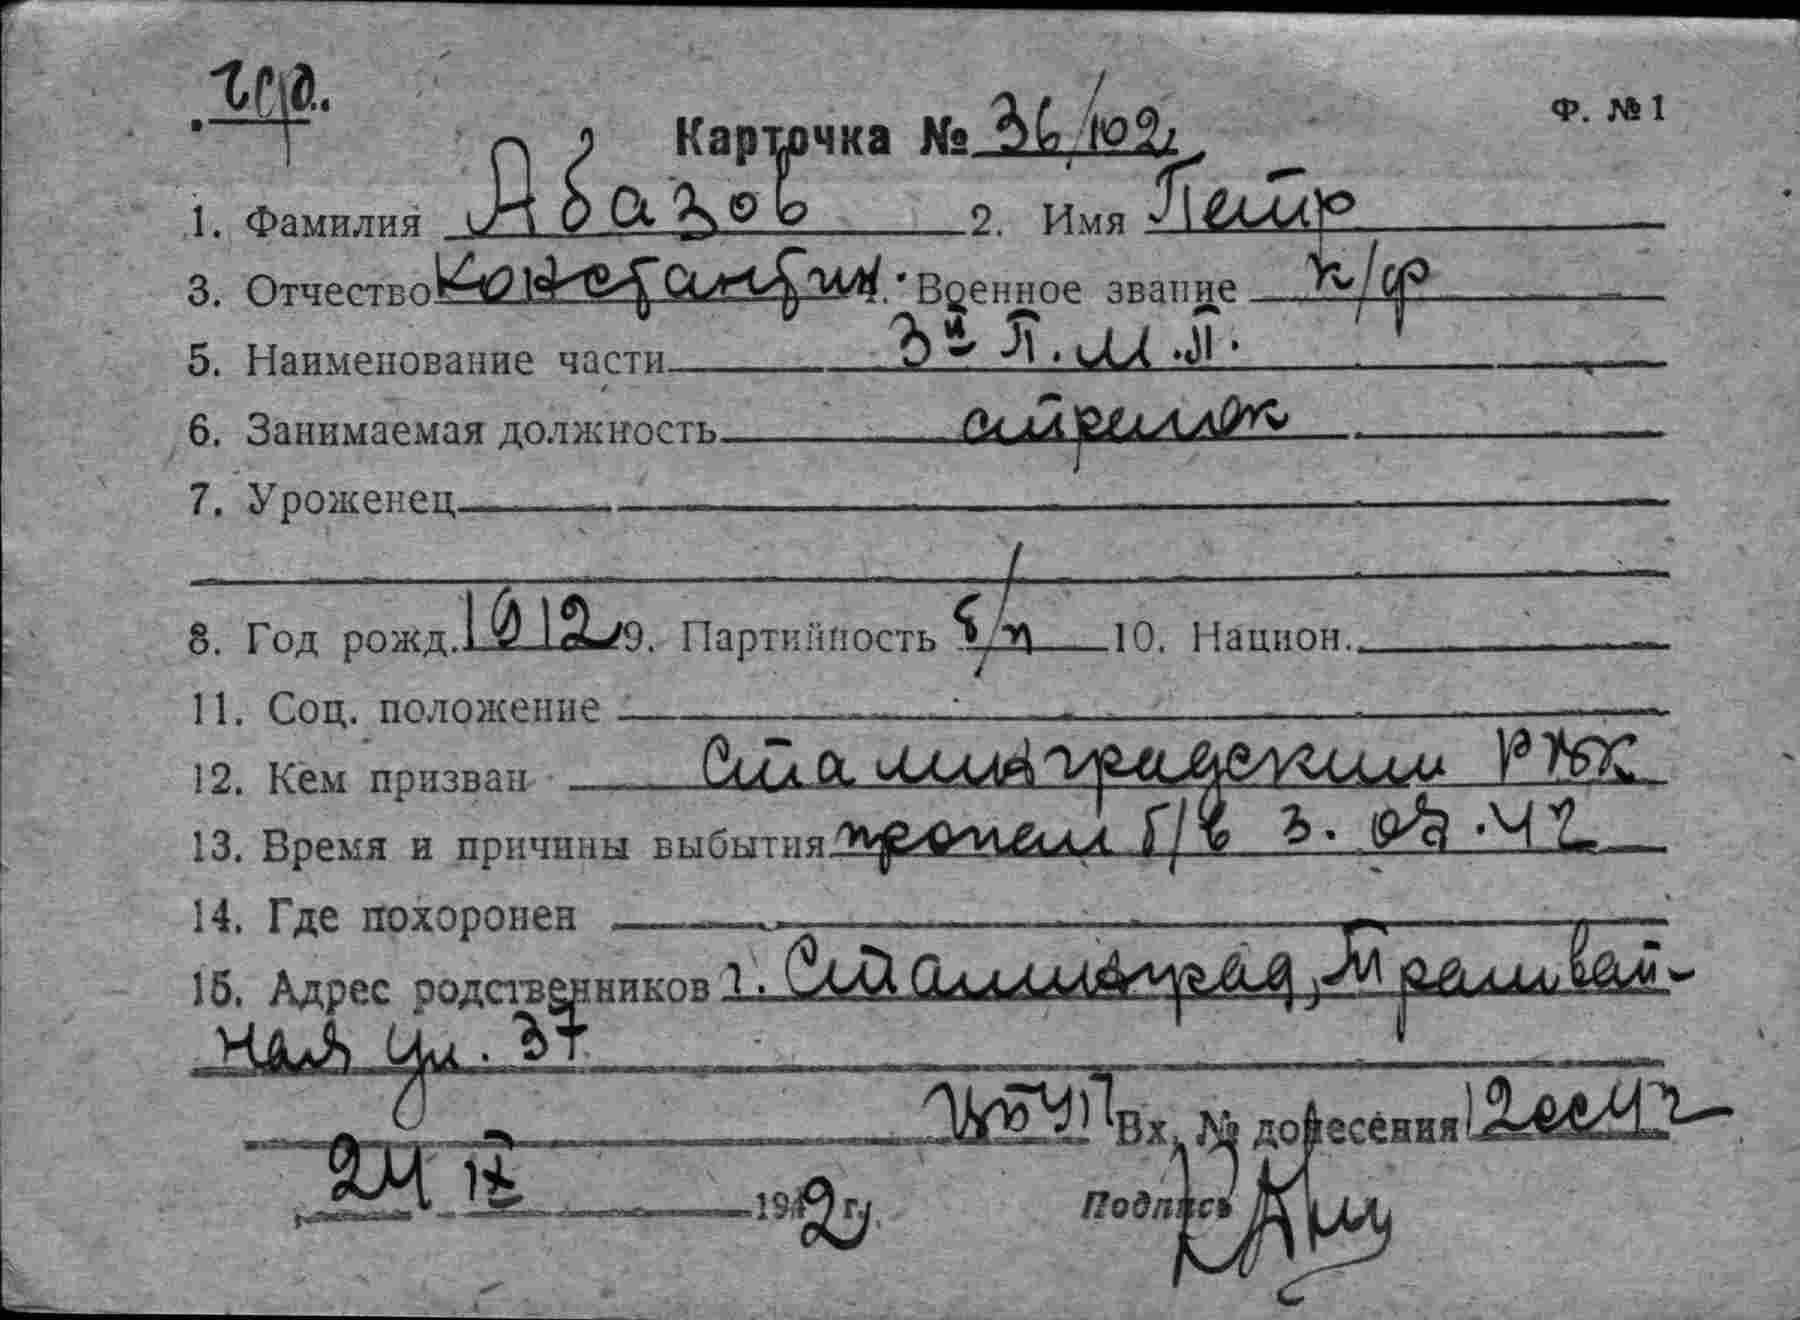 Ф. №1
Карточка № 36/102
1. Фамилия Абазов 2. Имя Петр
3. Отчество Константин. Военное звание к/ф
5. Наименование части 3й П.М.П.
6. Занимаемая должность стрелок
7. Уроженец
8. Год рожд. 1912 9. Партийность б/п 10. Национ.
11. Соц. положение
12. Кем призван Сталинградским РВК
13. Время и причины выбытия пропал б/в 3. 42
14. Где похоронен
15. Адрес родственников г. Сталинград, Трамвай-
ная ул. 37
Вх. № донесения
24 IX 1942 г.
Подпись